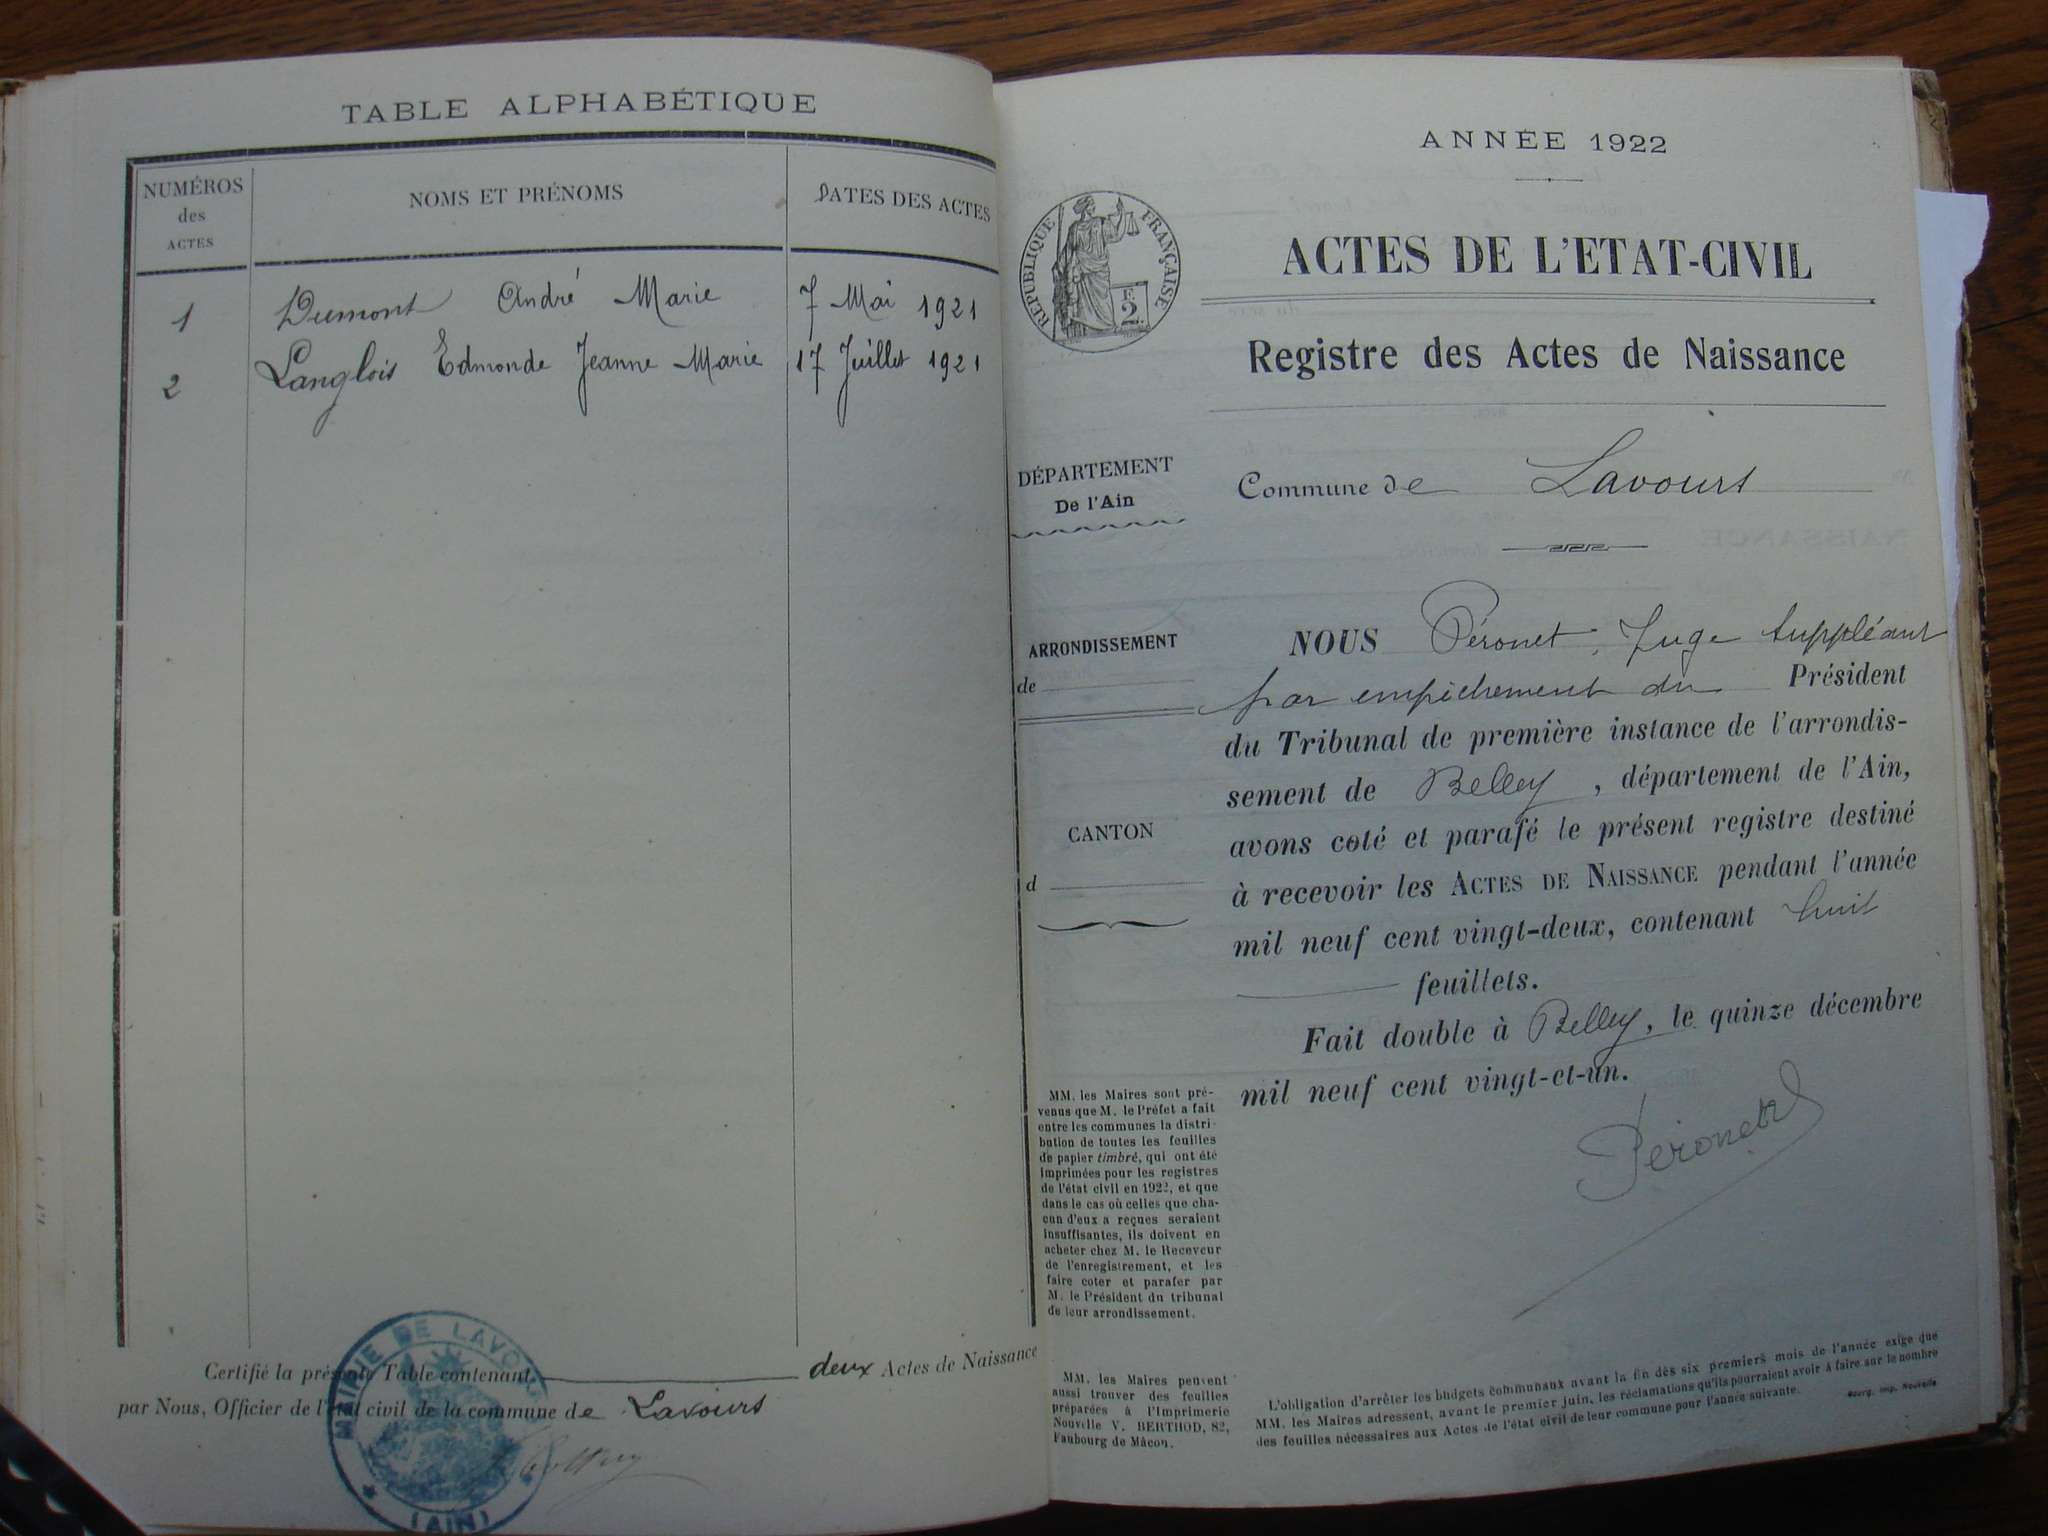 TABLE ALPHABÉTIQUE
NUMÉROS
des
ACTES
NOMS ET PRÉNOMS
DATES DES ACTES
1 Dumont André Marie 7 Mai 1921
2 Langlois Edmonde Jeanne Marie 17 Juillet 1921
Certifié la présente Table contenant deux Actes de Naissance
par Nous, Officier de l'état civil de la commune de Lavours
MAIRIE DE LAVOURS
(AIN)
ANNÉE 1922
RÉPUBLIQUE FRANÇAISE
E
2
ACTES DE L'ETAT-CIVIL
Registre des Actes de Naissance
DÉPARTEMENT
De l'Ain
Commune de Lavours
ARRONDISSEMENT
de
CANTON
d
NOUS Péronet, Juge Suppléant
par empêchement du Président
du Tribunal de première instance de l'arrondis-
sement de Belley, département de l'Ain,
avons coté et parafé le présent registre destiné
à recevoir les ACTES DE NAISSANCE pendant l'année
mil neuf cent vingt-deux, contenant huit
feuillets.
Fait double à Belley, le quinze décembre
mil neuf cent vingt-et-un.
Péronet
MM. les Maires sont pré-
venus que M. le Préfet a fait
entre les communes la distri-
bution de toutes les feuilles
de papier timbré, qui ont été
imprimées pour les registres
de l'état civil en 1922, et que
dans le cas où celles que cha-
cun d'eux a reçues seraient
insuffisantes, ils doivent en
acheter chez M. le Receveur
de l'enregistrement, et les
faire coter et parafer par
M. le Président du tribunal
de leur arrondissement.
MM. les Maires peuvent
aussi trouver des feuilles
préparées à l'Imprimerie
Nouvelle V. BERTHOD, 82,
Faubourg de Mâcon.
L'obligation d'arrêter les budgets communaux avant la fin des six premiers mois de l'année exige que
MM. les Maires adressent, avant le premier juin, les réclamations qu'ils pourraient avoir à faire sur le nombre
des feuilles nécessaires aux Actes de l'état civil de leur commune pour l'année suivante.
Bourg, imp. Nouvelle